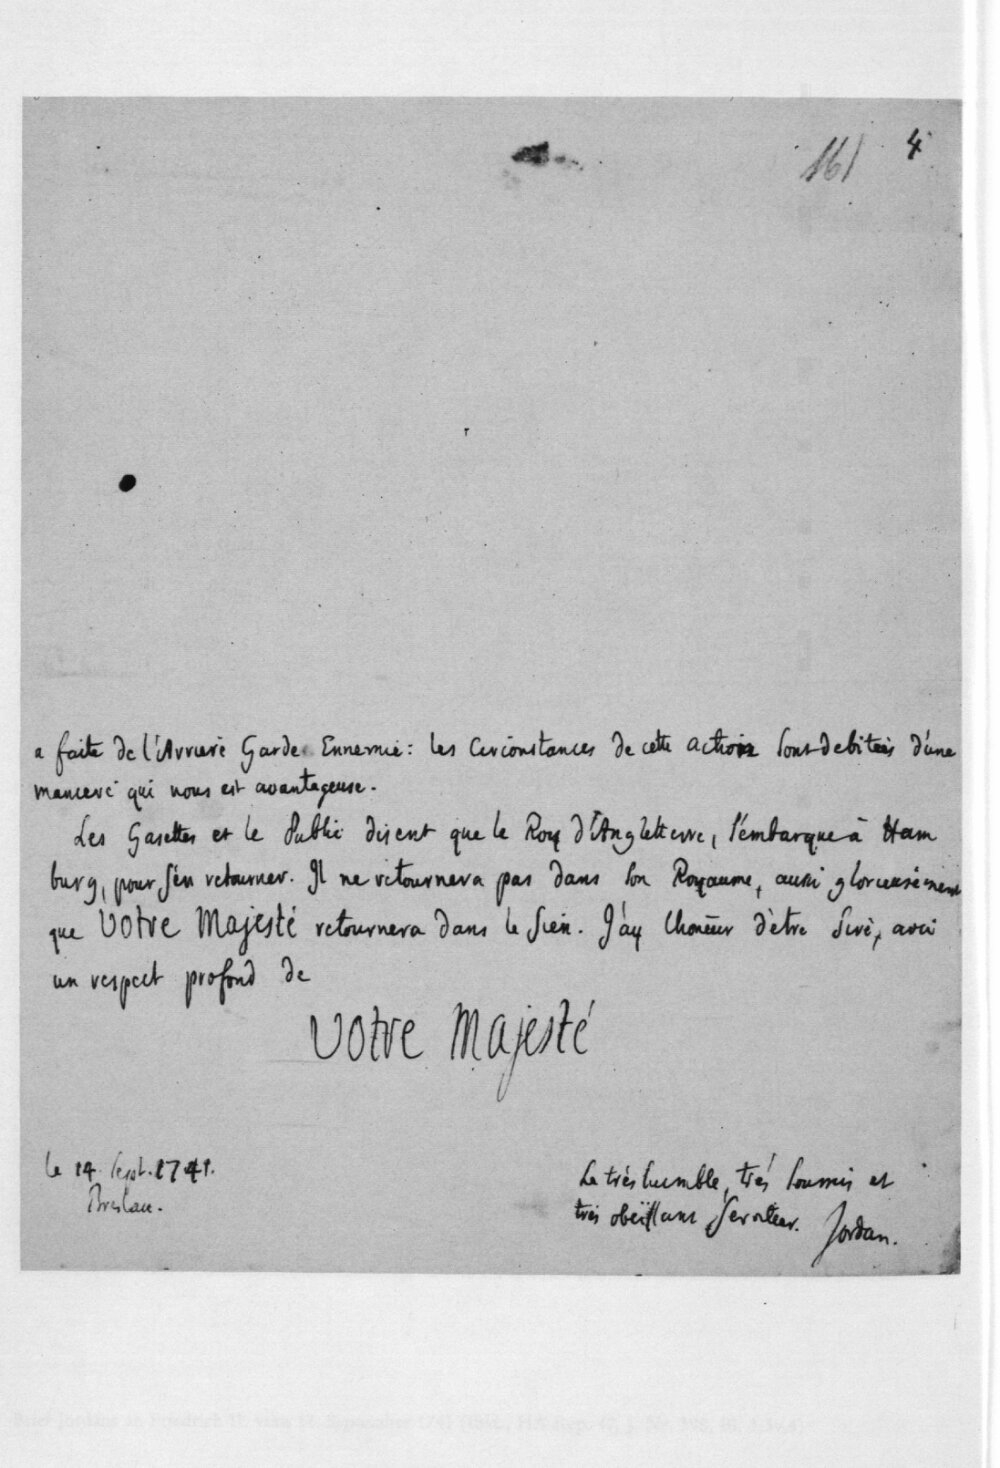 161 4
a faite de l'Arriere Garde Ennemie: les Circonstances de cette action sont debitées d'une
maniere qui nous est avantageuse.
Les Gasettes et le Public disent que le Roy d'Angleterre, s'embarque à Ham
burg, pour s'en retourner. Il ne retournera pas dans son Royaume, aussi glorieusement
que Votre Majesté retournera dans le Sien. J'ay l'honeur d'ètre Sire, avec
un respect profond de
Votre Majesté
le 14 Sept. 1741.
Breslau.
Le très humble, très soumis et
très obeissant Serviteur. Jordan.